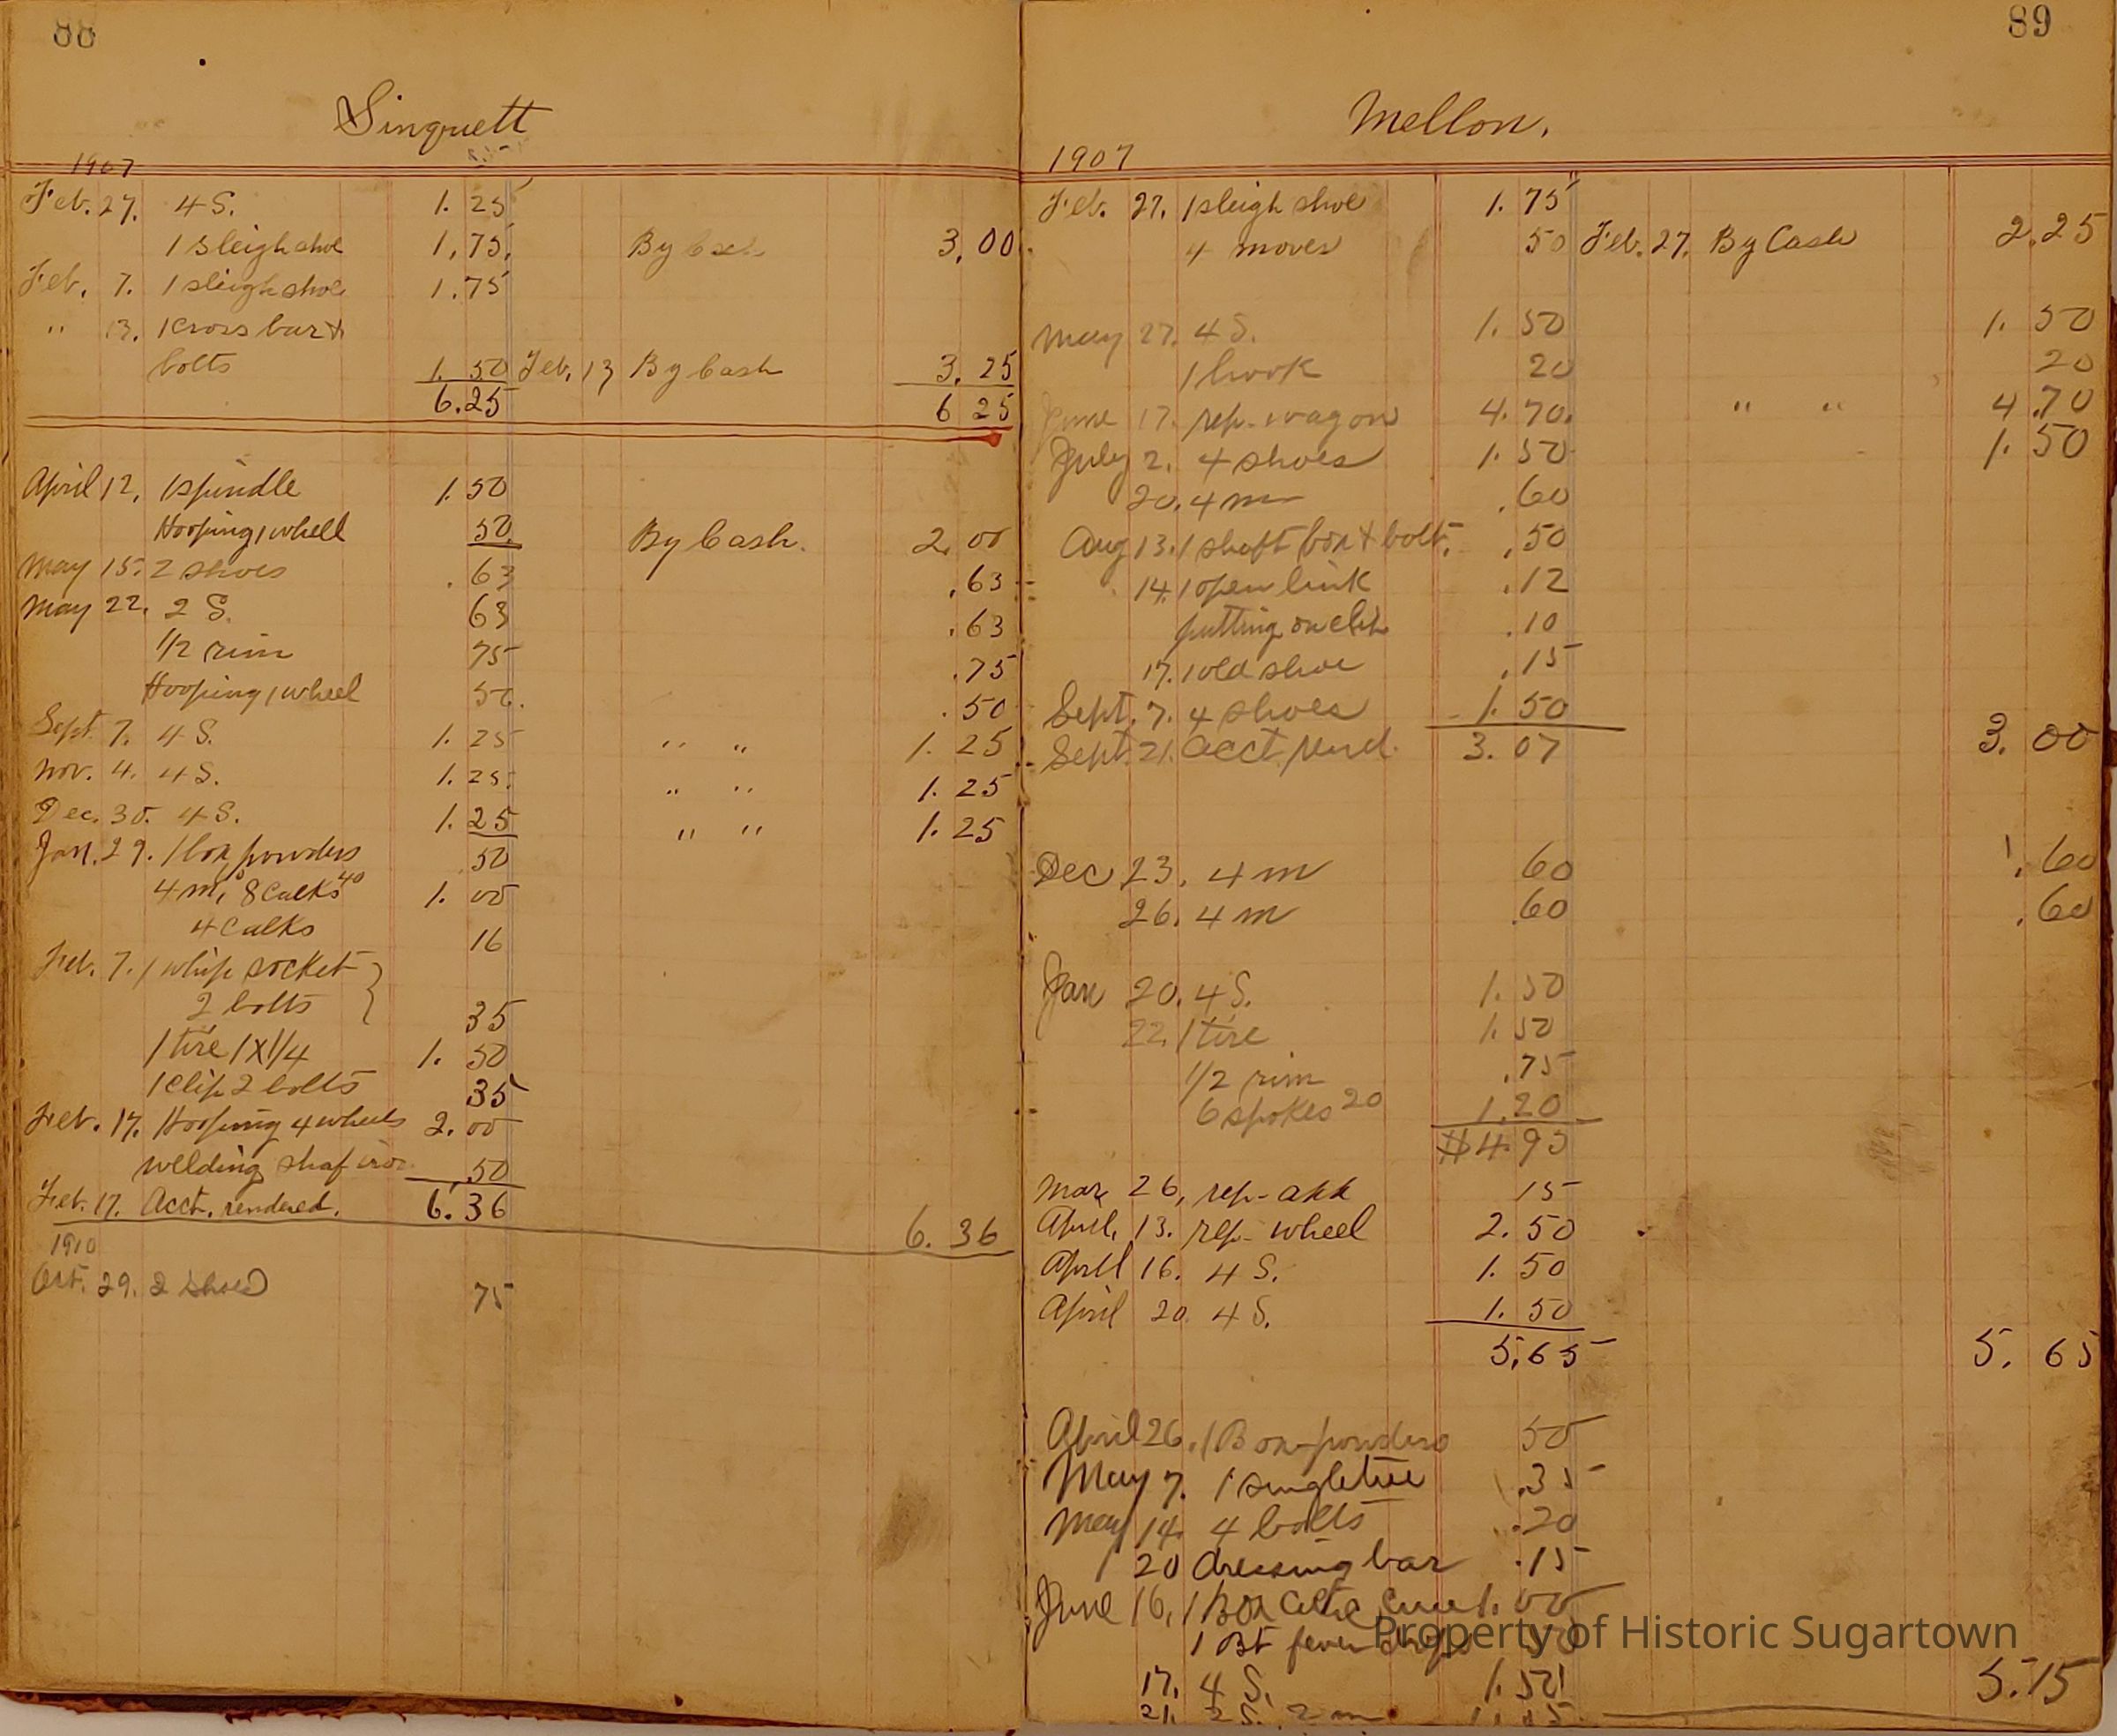 88
Sinquett
1907
Feb. 27. 4 S. 1. 25
1 Sleigh shoe 1.75. By Cash 3.00
Feb. 7. 1 sleigh shoe 1.75
" 13. 1 cross bar &
bolts 1.50 Feb. 13 By Cash 3.25
6.25 6 25
April 12, 1 spindle 1.50
Hooping 1 wheel 50 By Cash. 2.00
May 15. 2 shoes .63 .63
May 22. 2 S. 63 .63
1/2 rim 75 .75
Hooping 1 wheel 50. .50
Sept. 7. 4 S. 1. 25 " " 1. 25
Nov. 4. 4 S. 1. 25. " " 1. 25
Dec. 30. 4 S. 1. 25 " " 1. 25
Jan. 29. 1 box powders 50
4 m, 8 Calks 40 1. 00
4 Calks 16
Feb. 7. 1 whip socket }
2 bolts 35
1 tire 1 X 1/4 1. 50
1 clip 2 bolts 35
Feb. 17. Hooping 4 wheels 2. 00
welding shaf iron .50
Feb. 17. Acct. rendered. 6. 36 6. 36
1910
Oct. 29. 2 shoes 75
89
Mellon.
1907
Feb. 27. 1 sleigh shoe 1. 75
4 moves 50 Feb. 27. By Cash 2.25
May 27. 4 S. 1. 50 1. 50
1 hook 20 20
June 17. rep. wagon 4. 70. " " 4.70
July 2. 4 shoes 1. 50 1. 50
20. 4 m .60
Aug 13. 1 shaft box & bolt. .50
14. 1 open link .12
putting on clip .10
17. 1 old shoe .15
Sept. 7. 4 shoes 1. 50
Sept. 21. acct. rend. 3. 07 3. 00
Dec 23. 4 m 60 .60
26. 4 m .60 .60
Jan 20. 4 S. 1. 50
22. 1 tire 1. 50
1/2 rim .75
6 spokes 20 1.20
$4.95
Mar 26, rep- 15
April, 13. rep- wheel 2. 50
April 16. 4 S. 1. 50
April 20. 4 S. 1. 50
5.65 5. 65
April 26. 1 Box powders 50
May 7. 1 singletree .35
May 14. 4 bolts .20
20 dressing bar .15
June 16. 1 Box Cure 1. 00
1 Bt fever drops 50
17. 4 S. 1. 50 5.15
21. 2 S. 2 m
Property of Historic Sugartown